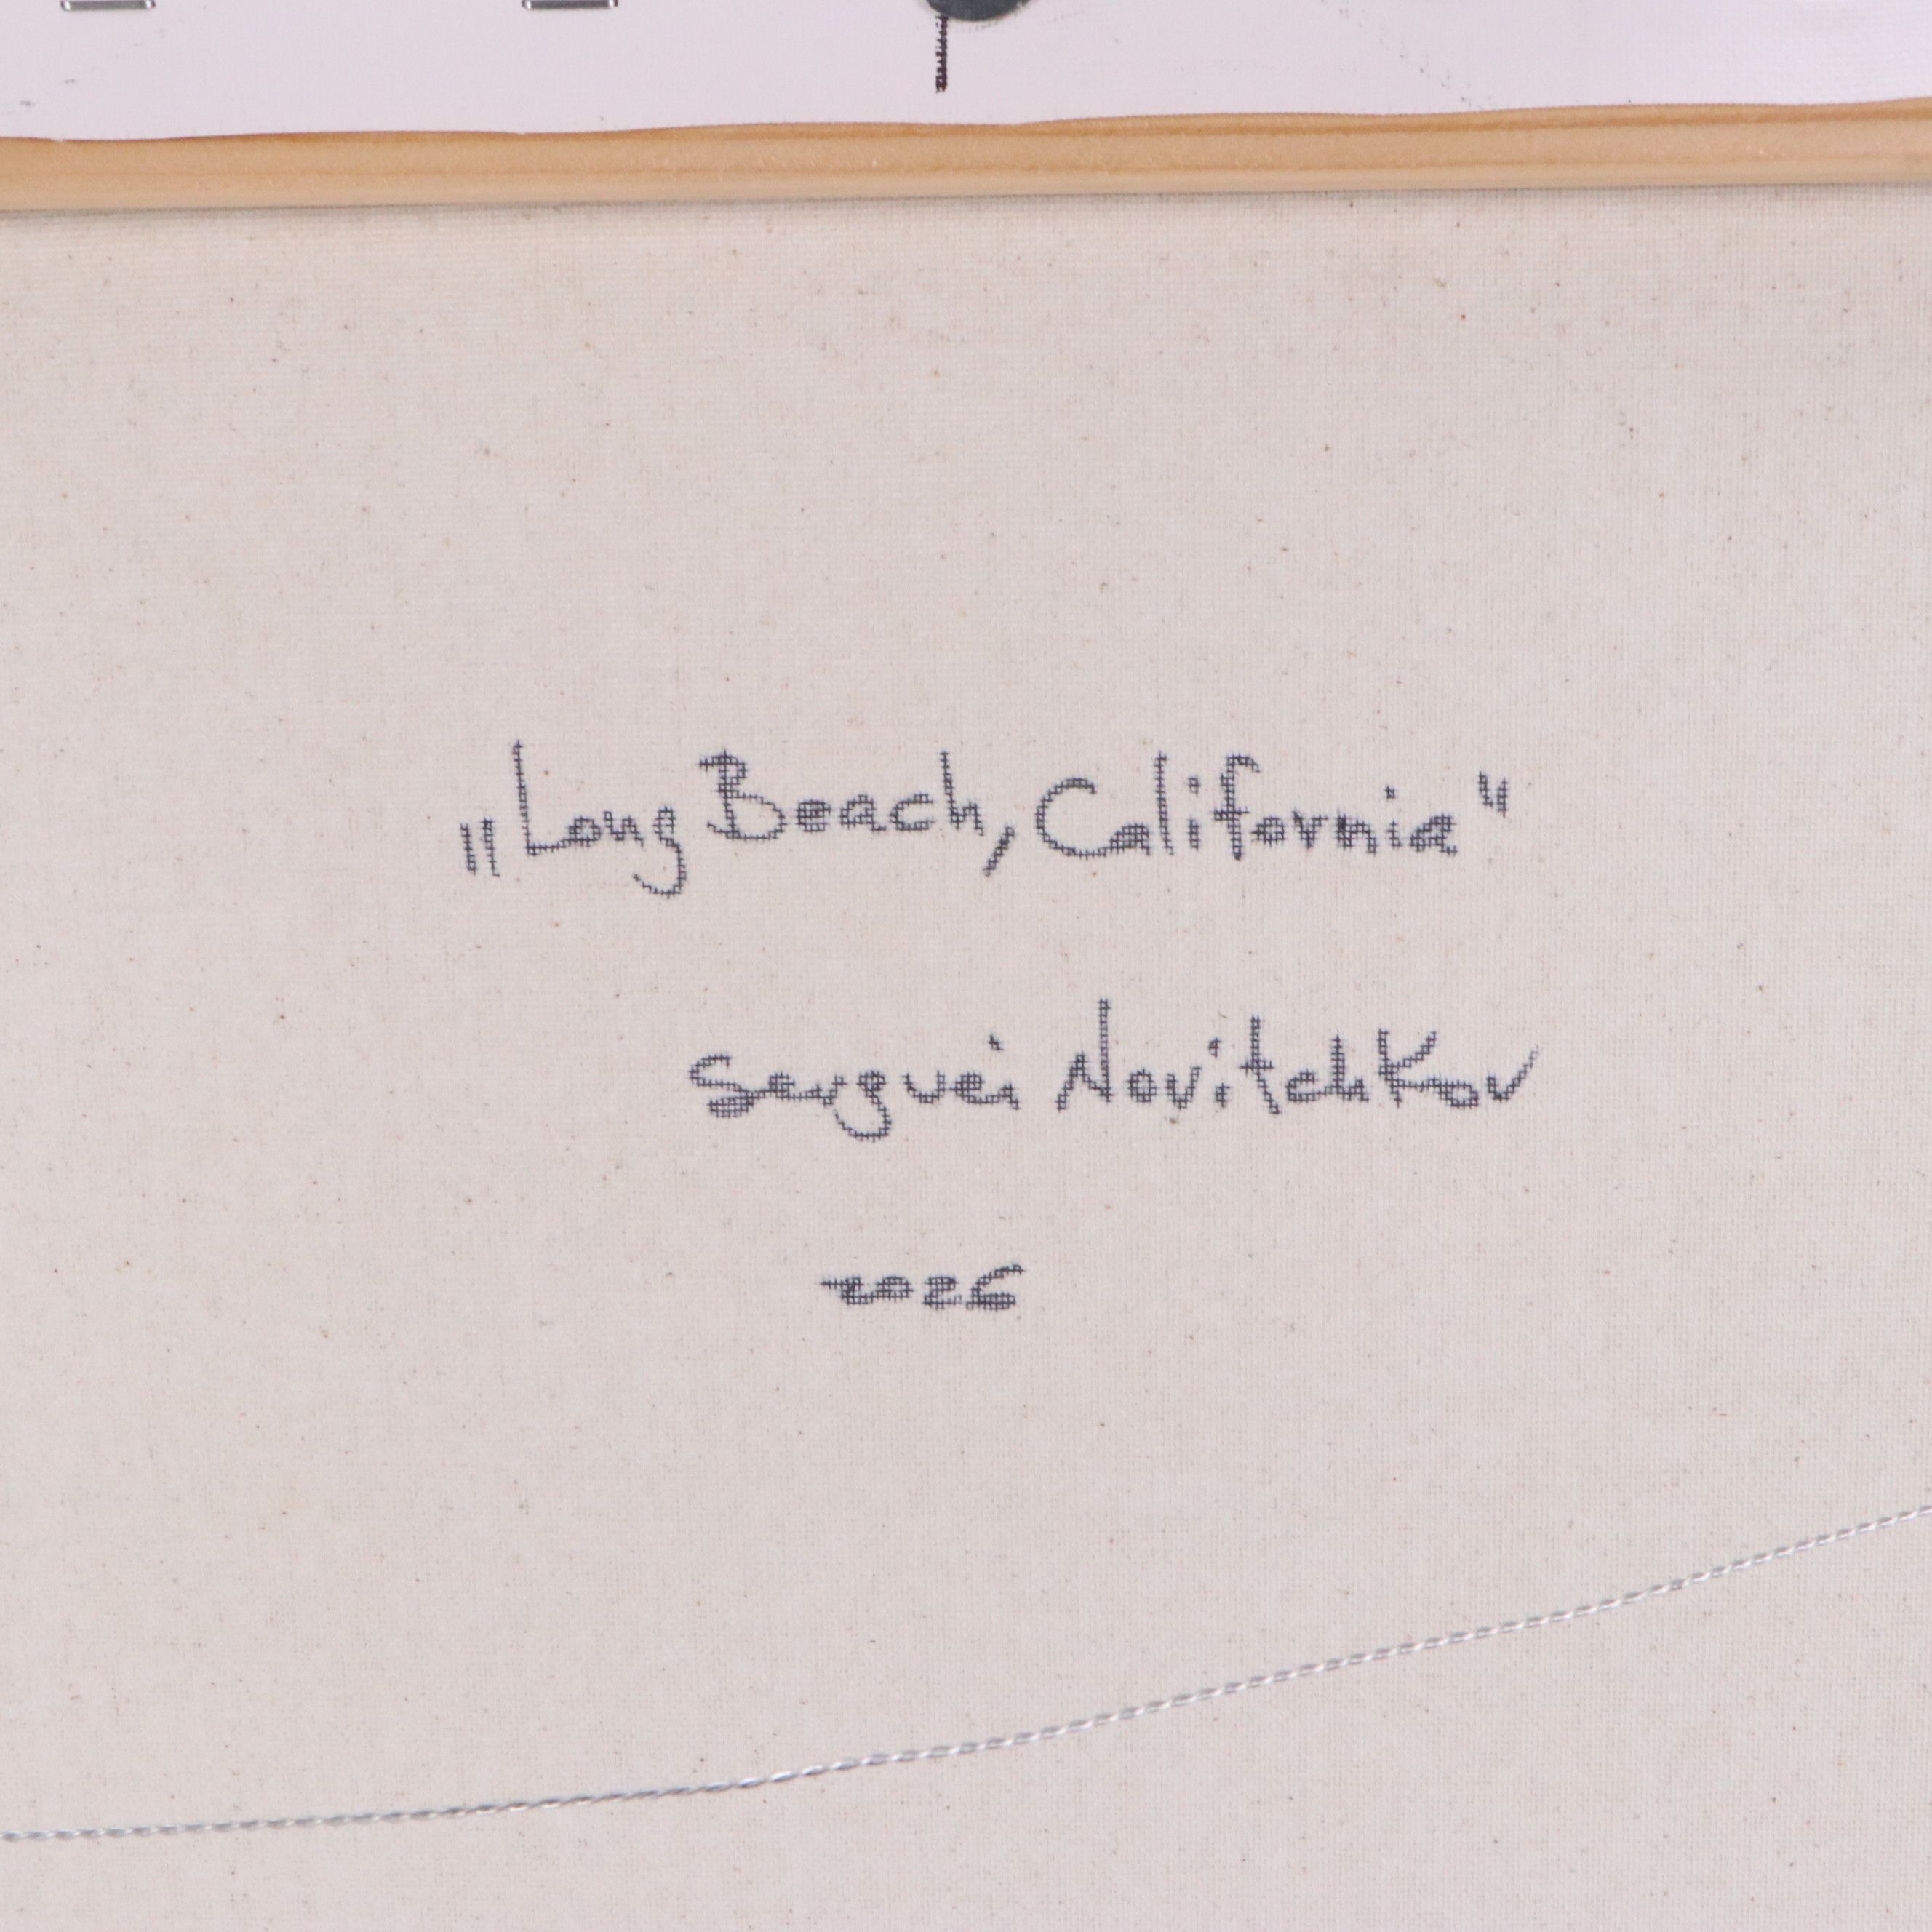 „Long Beach, California“
Serguei Novitchkov
2026